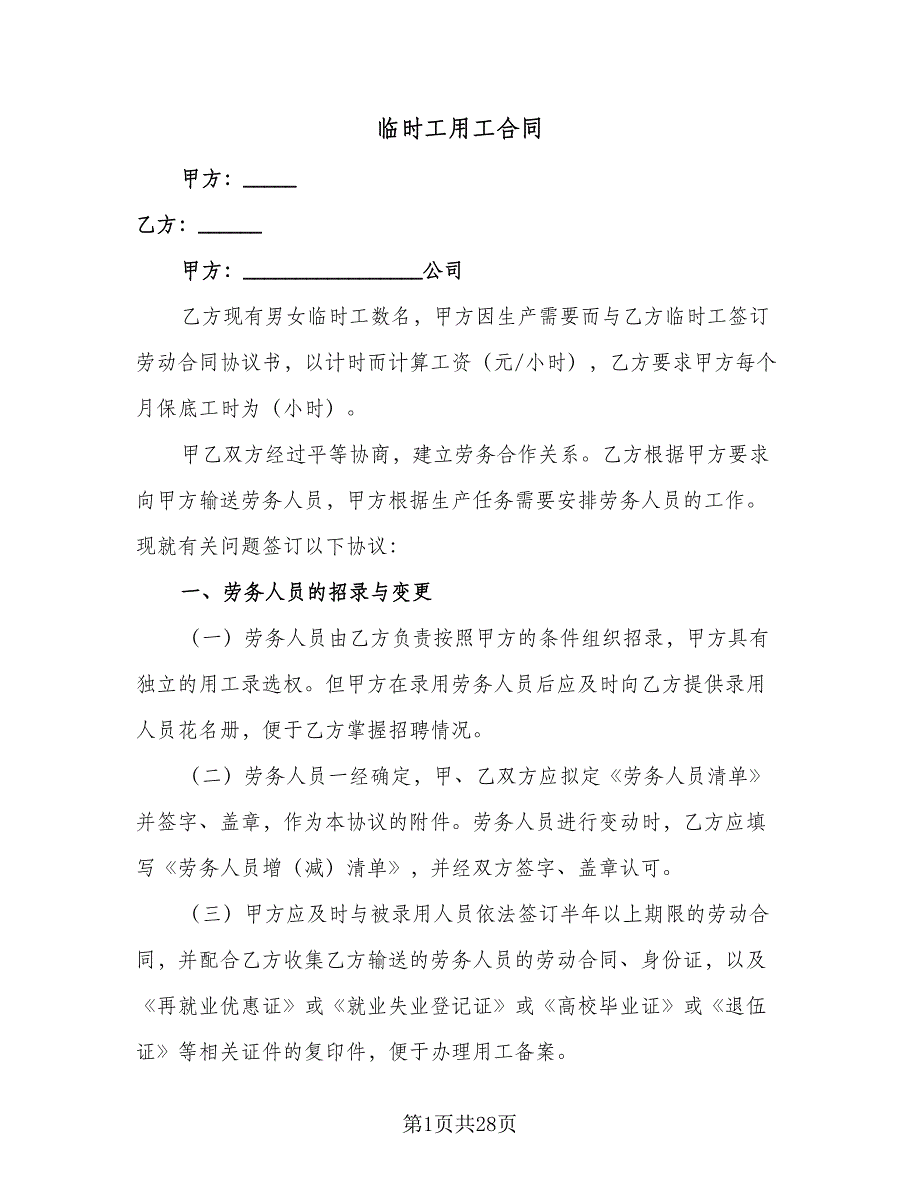 临时工用工合同
甲方：_____
乙方：______
甲方：_________________公司
乙方现有男女临时工数名，甲方因生产需要而与乙方临时工签订
劳动合同协议书，以计时而计算工资（元/小时），乙方要求甲方每个
月保底工时为（小时）。
甲乙双方经过平等协商，建立劳务合作关系。乙方根据甲方要求
向甲方输送劳务人员，甲方根据生产任务需要安排劳务人员的工作。
现就有关问题签订以下协议：
一、劳务人员的招录与变更
（一）劳务人员由乙方负责按照甲方的条件组织招录，甲方具有
独立的用工录选权。但甲方在录用劳务人员后应及时向乙方提供录用
人员花名册，便于乙方掌握招聘情况。
（二）劳务人员一经确定，甲、乙双方应拟定《劳务人员清单》
并签字、盖章，作为本协议的附件。劳务人员进行变动时，乙方应填
写《劳务人员增（减）清单》，并经双方签字、盖章认可。
（三）甲方应及时与被录用人员依法签订半年以上期限的劳动合
同，并配合乙方收集乙方输送的劳务人员的劳动合同、身份证，以及
《再就业优惠证》或《就业失业登记证》或《高校毕业证》或《退伍
证》等相关证件的复印件，便于办理用工备案。
第1页共28页